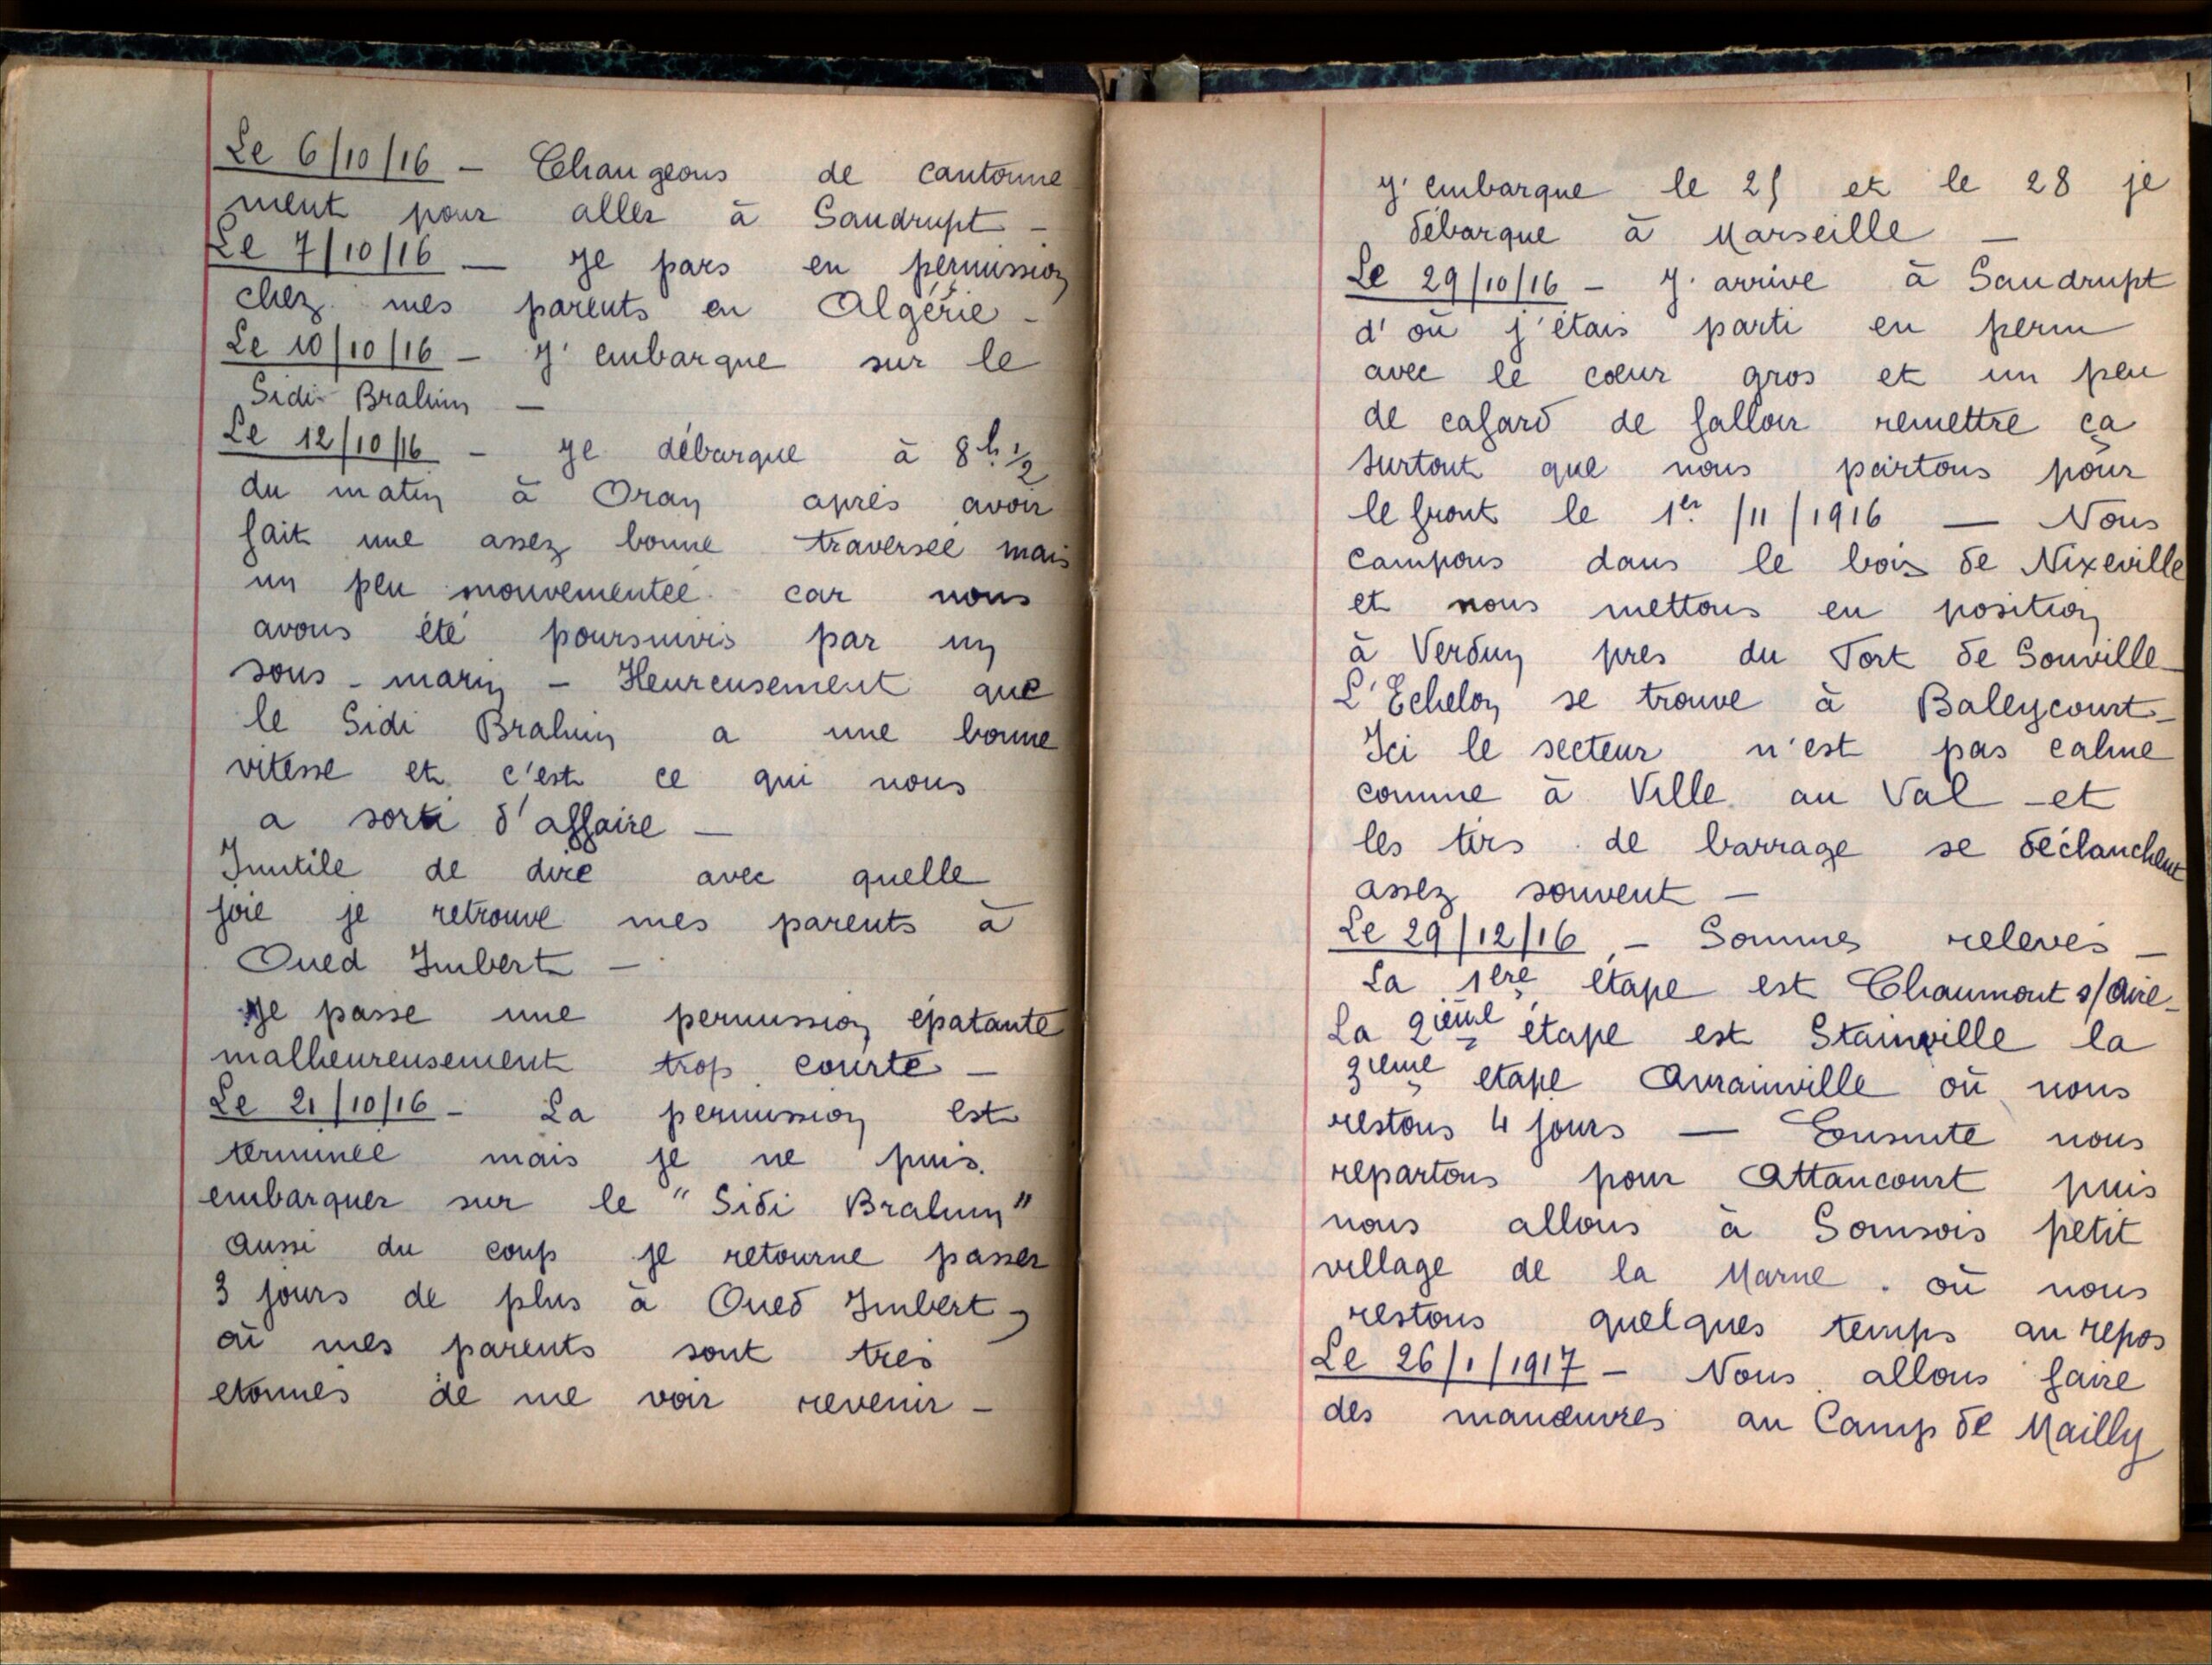 Le 6/10/16 – Changeons de cantonne
ment pour aller à Saudrupt –
Le 7/10/16 – Je pars en permission
chez mes parents en Algérie –
Le 10/10/16 – J'embarque sur le
Sidi-Brahim –
Le 12/10/16 – Je débarque à 8h 1/2
du matin à Oran après avoir
fait une assez bonne traversée mais
un peu mouvementée car nous
avons été poursuivis par un
sous-marin – Heureusement que
le Sidi Brahim a une bonne
vitesse et c'est ce qui nous
a sorti d'affaire –
Inutile de dire avec quelle
joie je retrouve mes parents à
Oued Imbert –
Je passe une permission épatante
malheureusement trop courte –
Le 21/10/16 – La permission est
terminée mais je ne puis
embarquer sur le "Sidi Brahim"
aussi du coup je retourne passer
3 jours de plus à Oued Imbert,
où mes parents sont très
étonnés de me voir revenir –
J'embarque le 25 et le 28 je
débarque à Marseille –
Le 29/10/16 – J'arrive à Saudrupt
d'où j'étais parti en perm
avec le cœur gros et un peu
de cafard de falloir remettre ça
surtout que nous partons pour
le front le 1er /11/1916 — Nous
campons dans le bois de Nixeville
et nous mettons en position
à Verdun près du Fort de Souville
L'Echelon se trouve à Baleycourt –
Ici le secteur n'est pas calme
comme à Ville au Val – et
les tirs de barrage se déclanchent
assez souvent –
Le 29/12/16 – Sommes relevés –
La 1ère étape est Chaumont s/Aire –
La 2ième étape est Stainville la
3ième étape Avrainville où nous
restons 4 jours — Ensuite nous
repartons pour Attancourt puis
nous allons à Somsois petit
village de la Marne . où nous
restons quelques temps au repos
Le 26/1/1917 – Nous allons faire
des manœuvres au Camp de Mailly